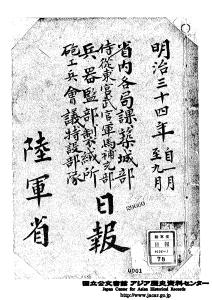 明治三十四年自七月至九月
省内各局課築城部
侍従東宮武官軍馬補充部
兵器監部製絨所
砲工兵會議特設部隊
日報
陸軍省
0001
国立公文書館 アジア歴史資料センター
Japan Center for Asian Historical Records
http://www.jacar.go.jp